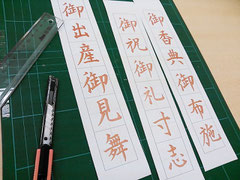 御香典御布施
御祝御礼寸志
御出産御見舞